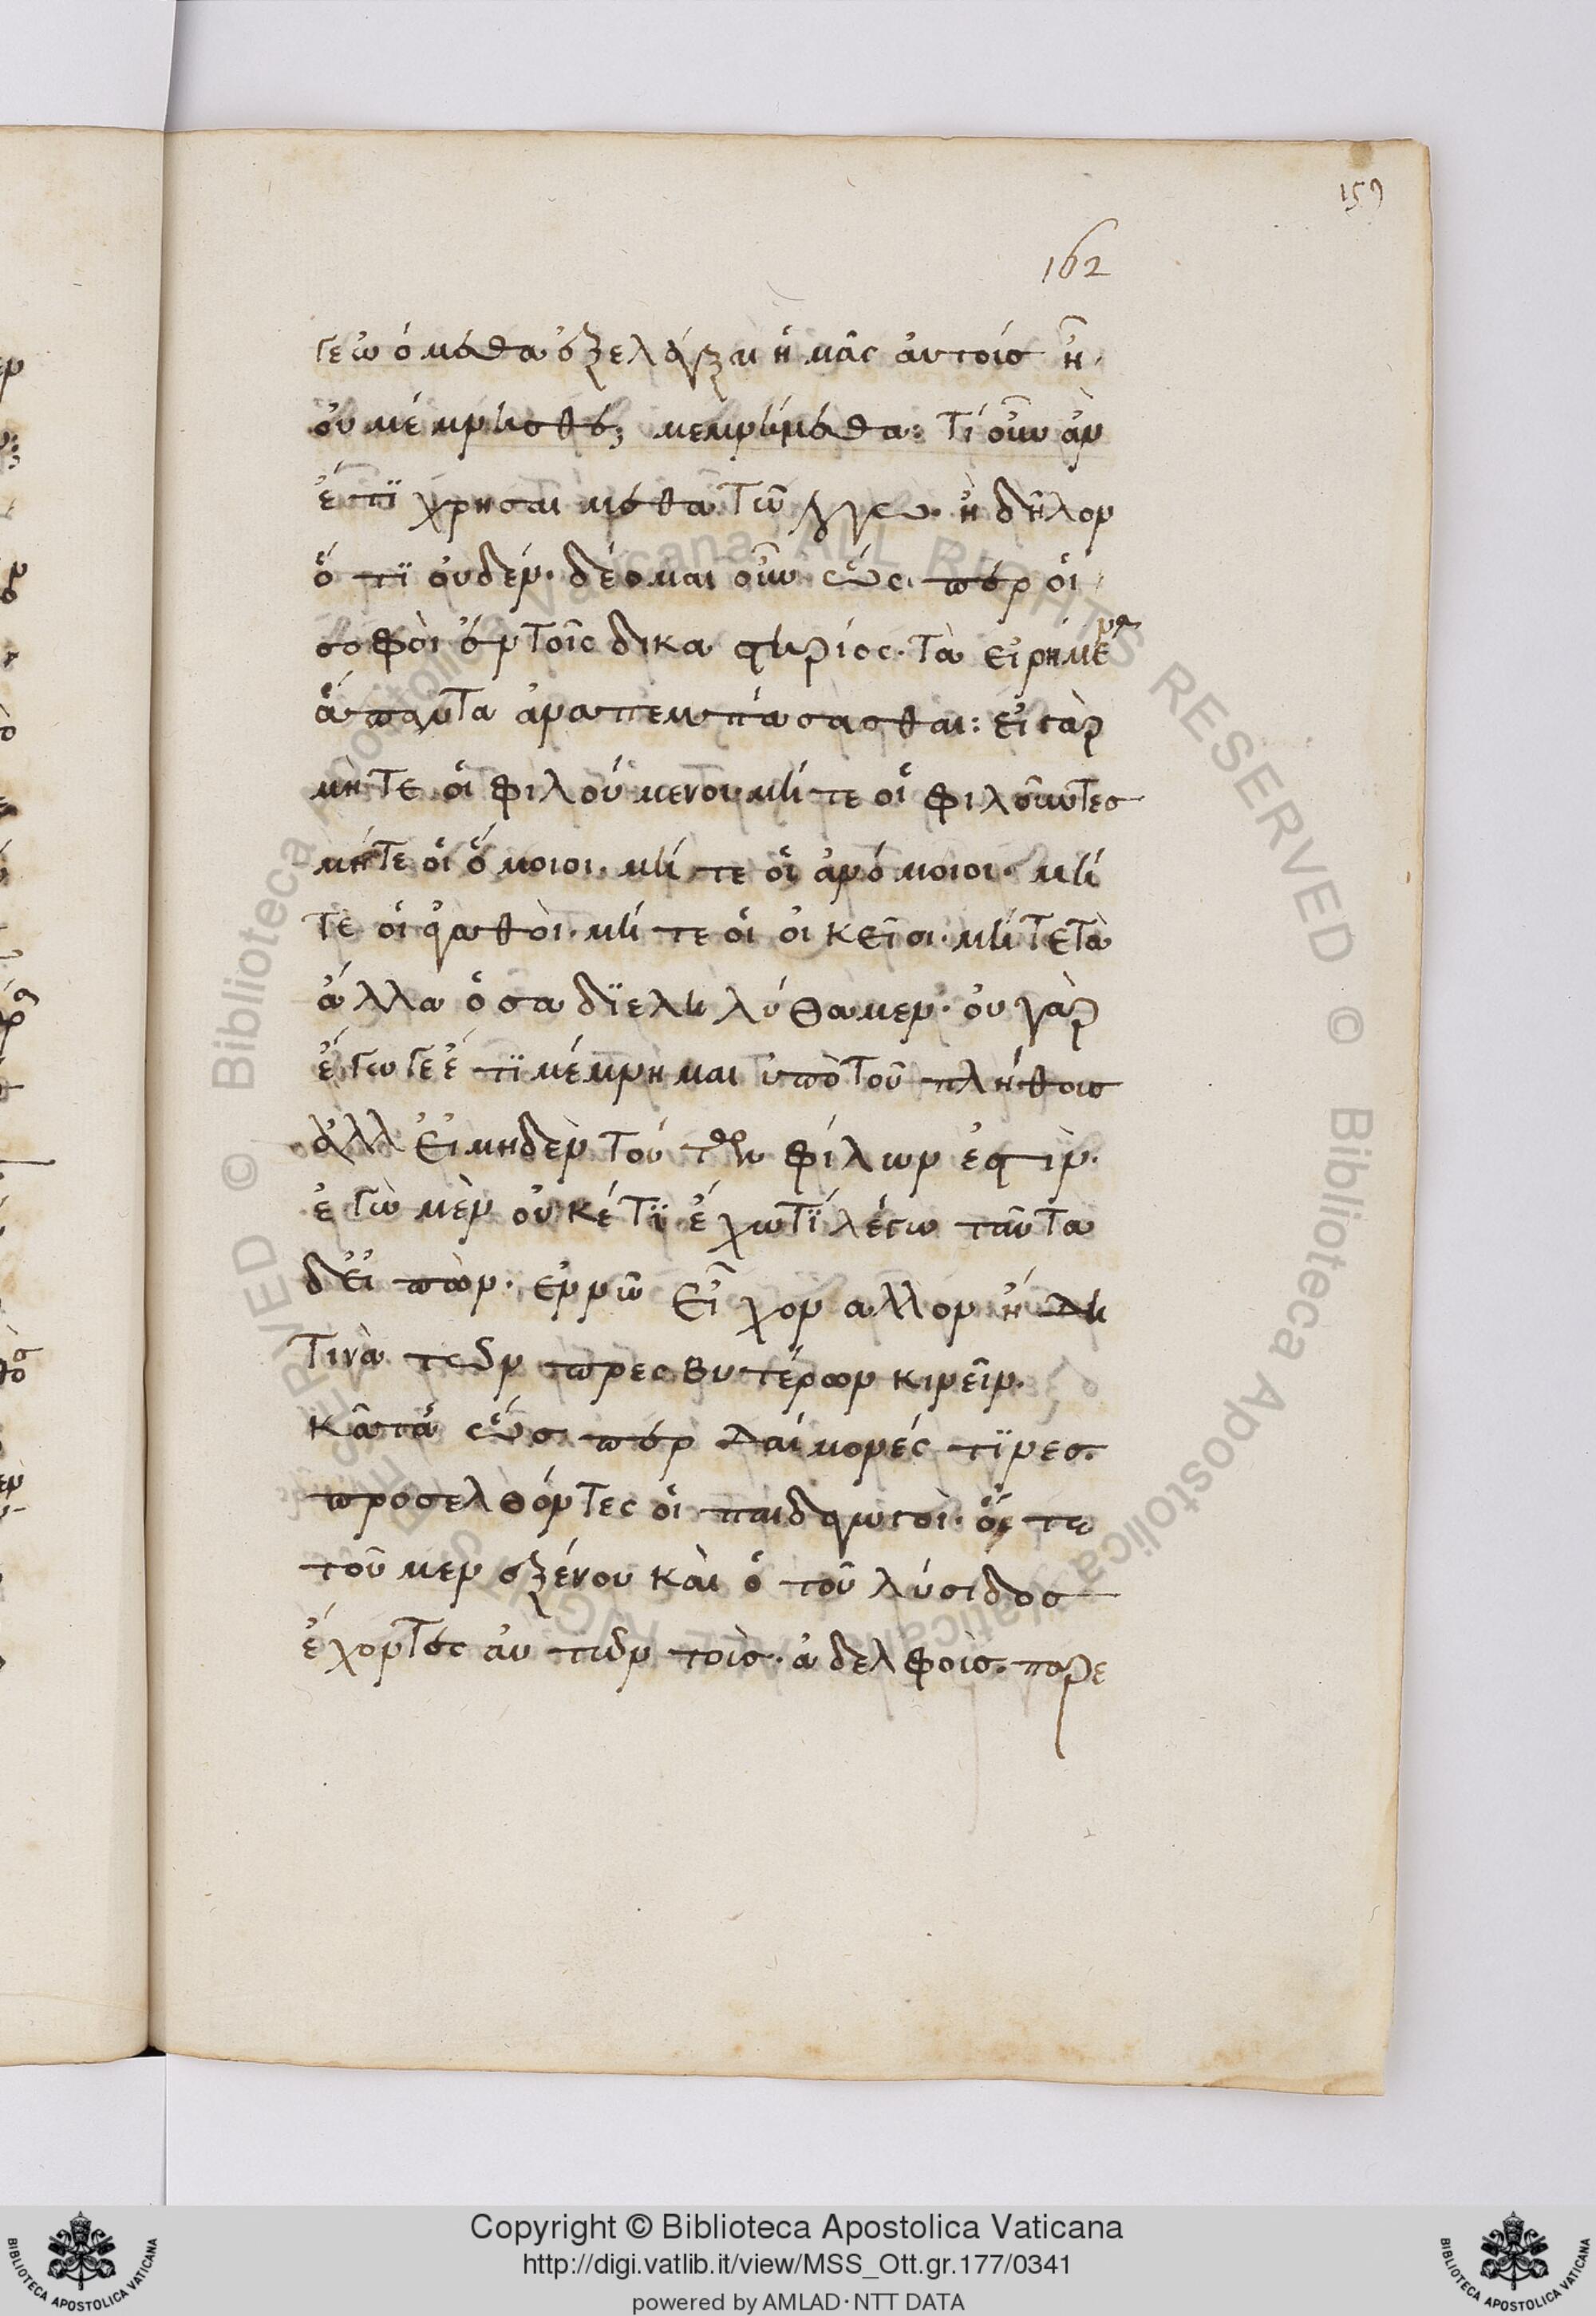 159
162
γεώμεθα ἐξελέγξαι ἡμᾶς αὐτοὺς ἢ
οὐ μέμνησθε; μεμνήμεθα: τί οὖν ἂν
ἔτι χρησαίμεθα τῷ λόγῳ. ἢ δῆλον
ὅτι οὐδέν. δέομαι οὖν ὥσπερ οἱ
σοφοὶ ἐν τοῖς δικαστηρίοις. τὰ εἰρημένα
ἅπαντα ἀναπεμπάσασθαι: εἰ γὰρ
μήτε οἱ φιλούμενοι μήτε οἱ φιλοῦντες
μήτε οἱ ὅμοιοι. μήτε οἱ ἀνόμοιοι. μή
τε οἱ ἀγαθοὶ. μήτε οἱ οἰκεῖοι. μήτε τὰ
ἄλλα ὅσα διεληλύθαμεν. οὐ γὰρ
ἔγωγε ἔτι μέμνημαι ὑπὸ τοῦ πλήθους
ἀλλ εἰ μηδὲν τούτων φίλων ἐστὶν.
ἐγὼ μὲν οὐκέτι ἔχω τί λέγω ταῦτα
δ εἰπὼν. ἐν νῷ εἶχον αλλον ἤδη
τινὰ τῶν πρεσβυτέρων κινεῖν.
κᾆτα ὥσπερ δαίμονές τινες.
προσελθόντες οἱ παιδαγωγοὶ. ὅ τε
τοῦ μενεξένου καὶ ὁ τοῦ λύσιδος
ἔχοντες αὐτῶν τοὺς ἀδελφοὺς. παρε
Copyright © Biblioteca Apostolica Vaticana
http://digi.vatlib.it/view/MSS_Ott.gr.177/0341
powered by AMLAD·NTT DATA